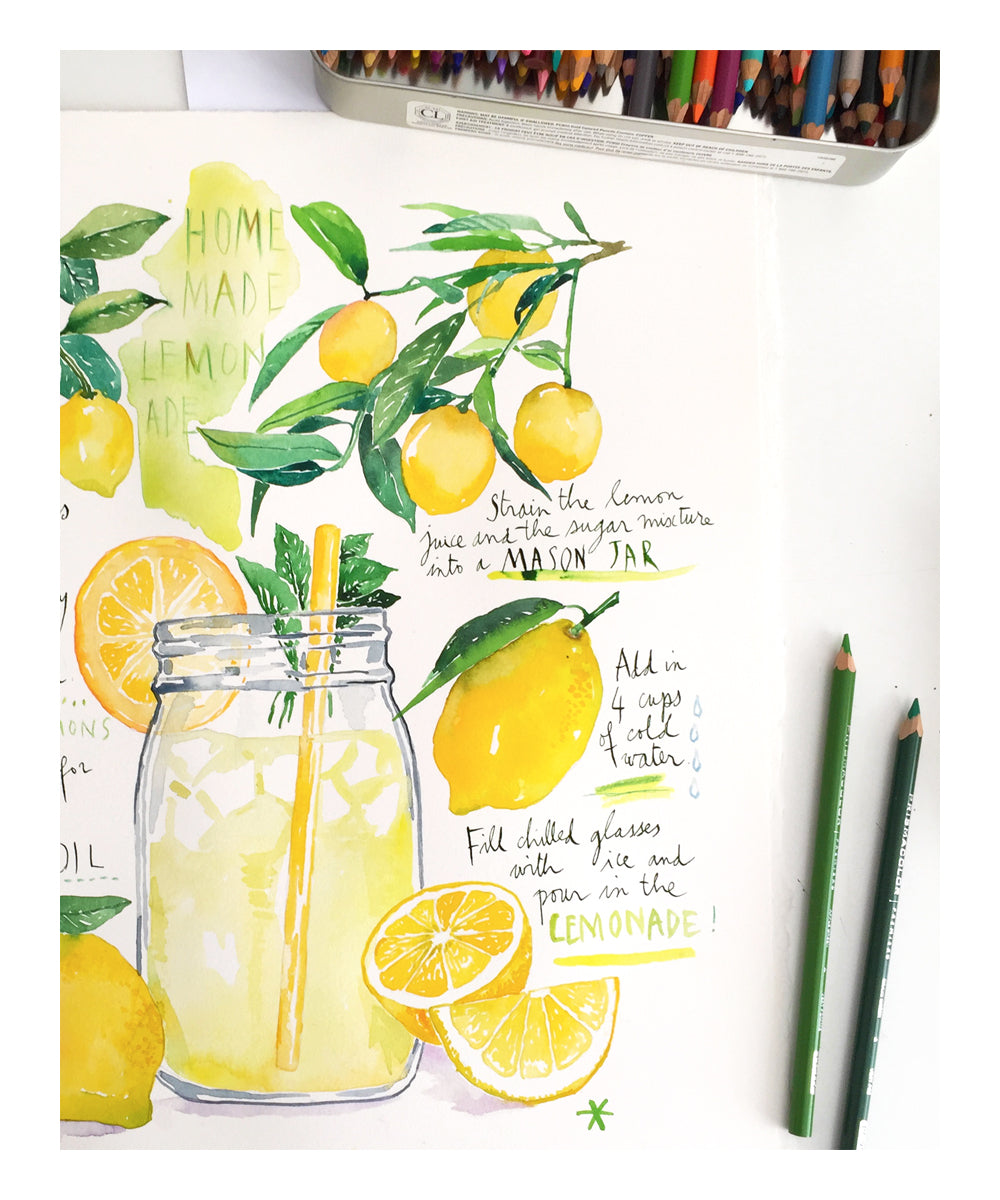 HOME
MADE
LEMON
ADE
Strain the lemon
juice and the sugar mixture
into a MASON JAR
Add in
4 cups
of cold
water
Fill chilled glasses
with ice and
pour in the
LEMONADE!
for
OIL
CL